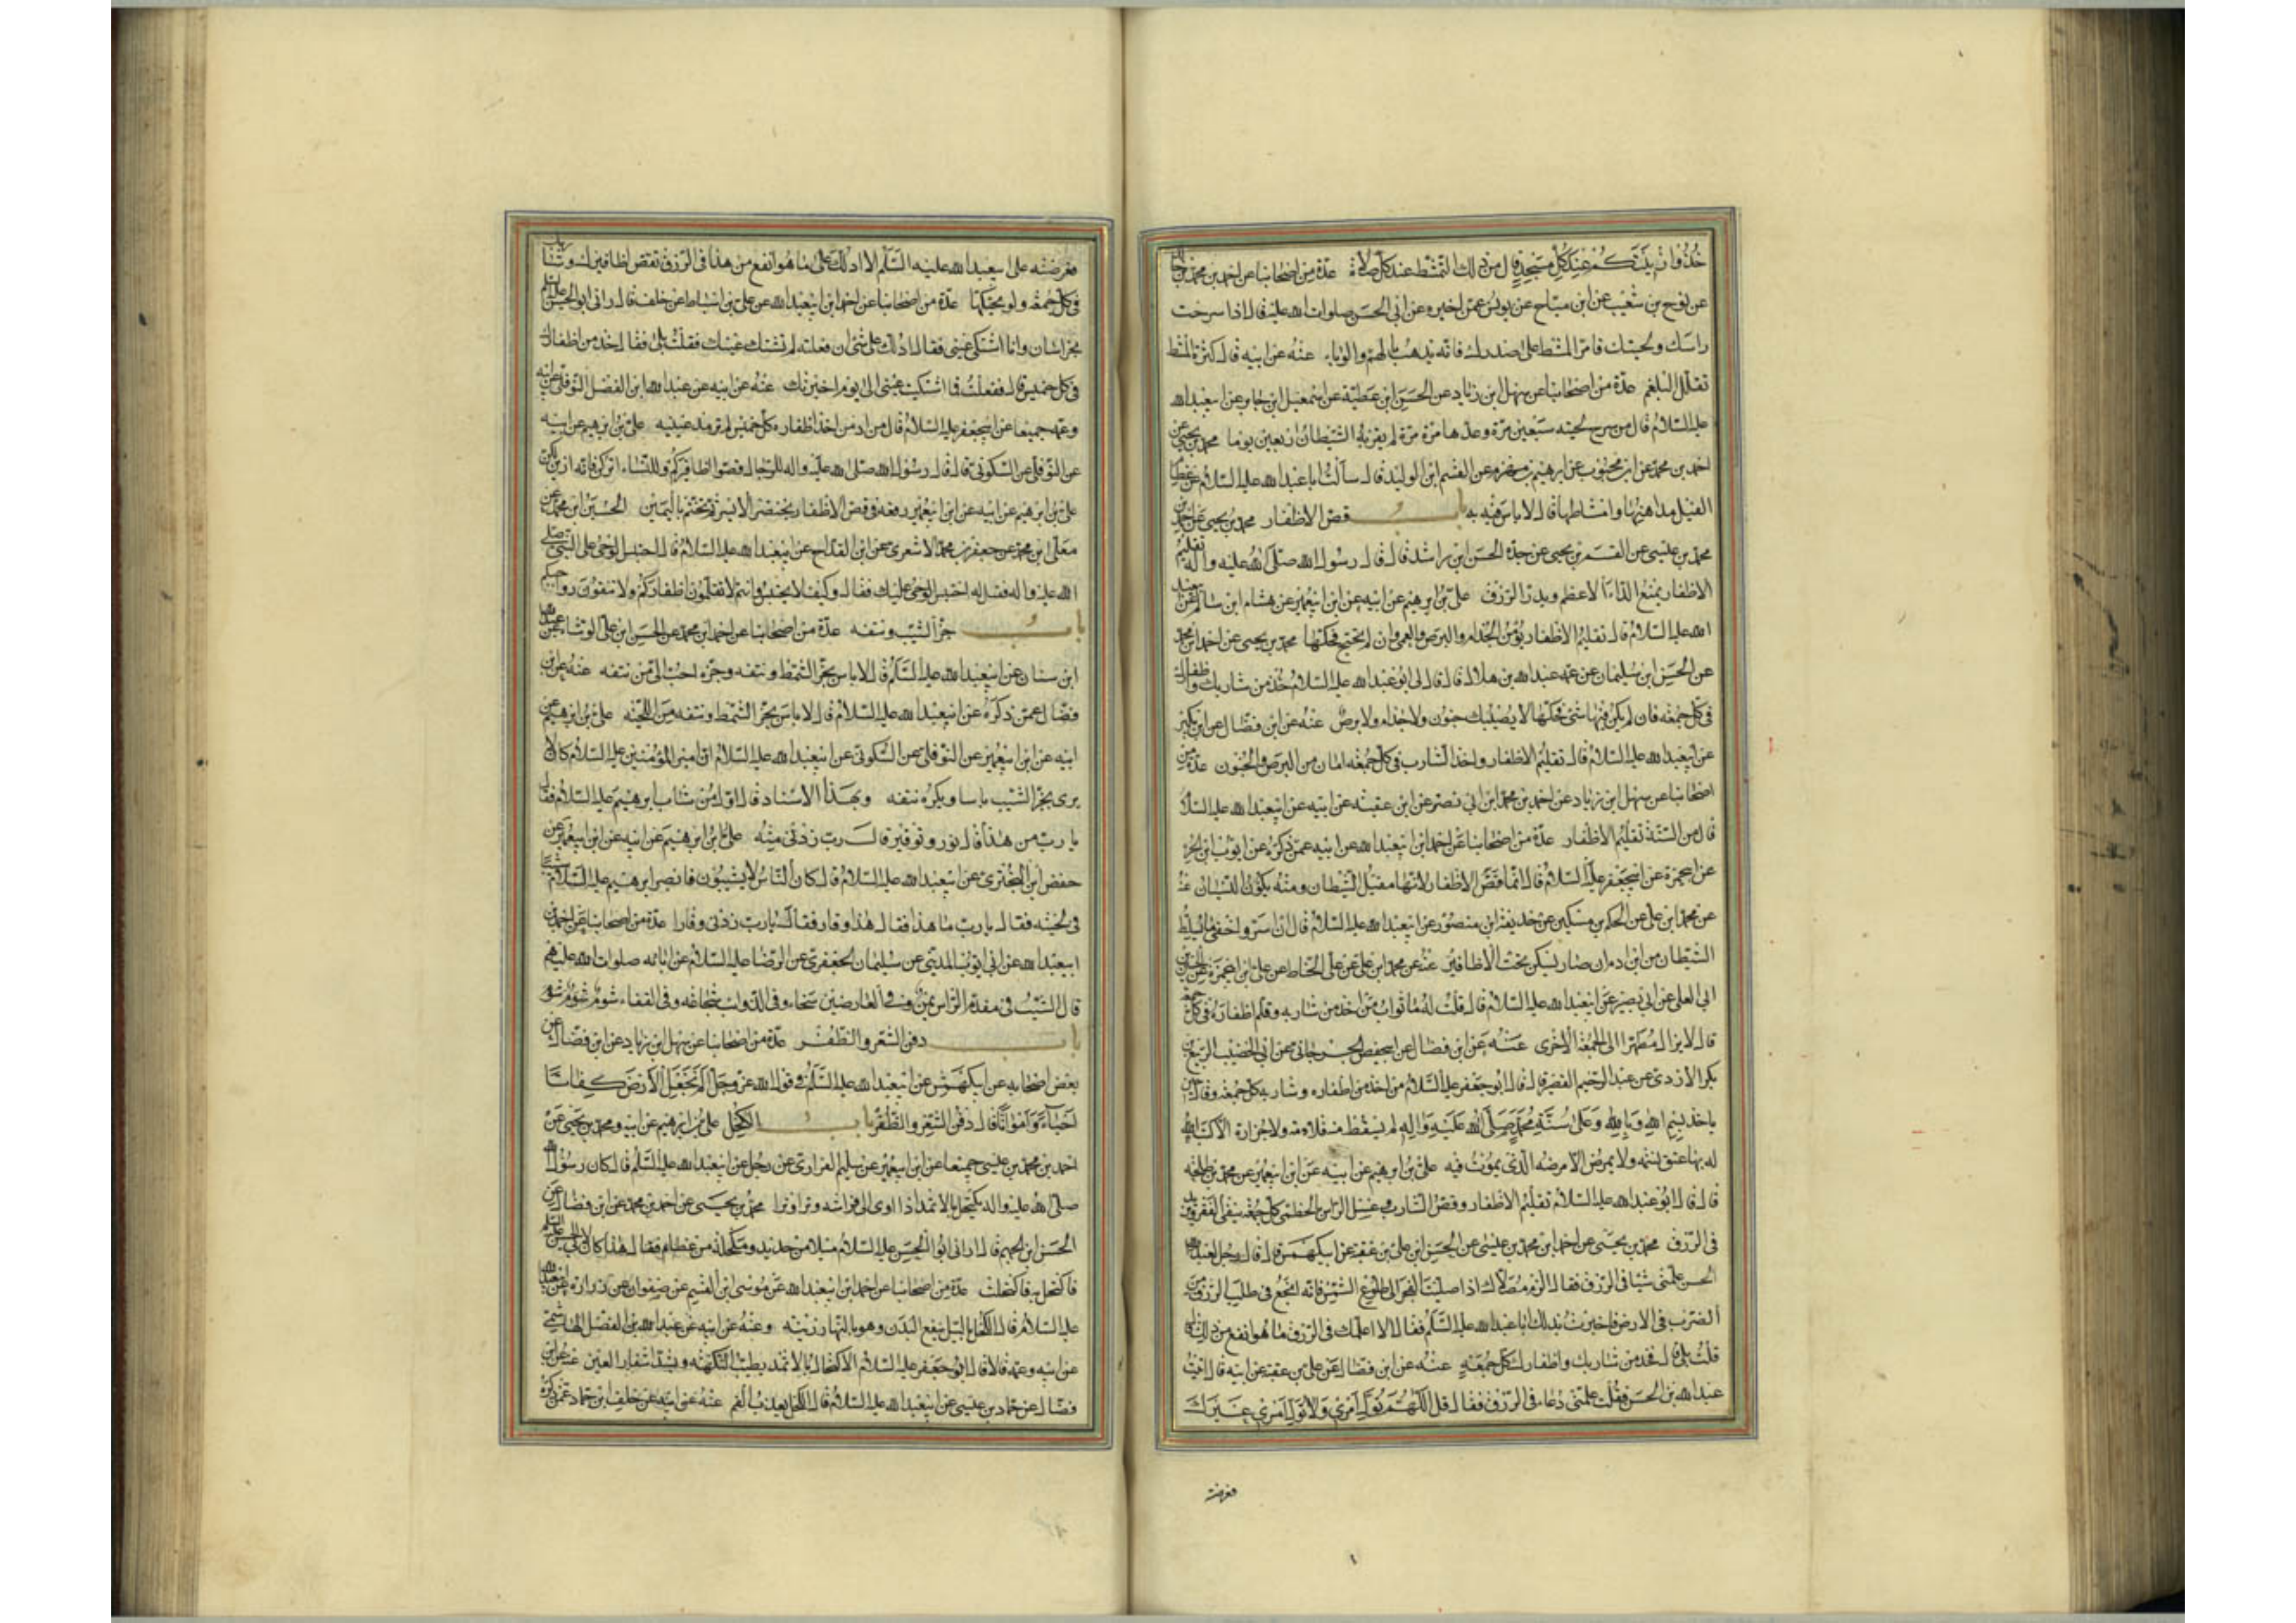 خُذُوا زِينَتَكُمْ عِنْدَ كُلِّ مَسْجِدٍ قال من ذلك التمشط عند كل صلاة عدة من اصحابنا عن احمد بن محمد بن خالد
عن نوح بن شعيب عن ابن مياح عن يونس عمن اخبره عن ابي الحسن صلوات الله عليه قال اذا سرحت
راسك ولحيتك فامر المشط على صدرك فانه يذهب بالهم والوباء عنه عن ابيه قال كثرة المشط
تقلل البلغم عدة من اصحابنا عن سهل ابن زياد عن الحسن ابن عطية عن اسمعيل ابن جابر عن ابيعبدالله
عليه السلام قال من سرح لحيته سبعين مرة وعدها مرة مرة لم يقربه الشيطان اربعين يوما محمد بن يحيى عن
احمد بن محمد عن ابن محبوب عن ابرهيم بن مهزم عن القسم ابن الوليد قال سألت ابا عبدالله عليه السلام عن عظام
الفيل مداهنها وامشاطها قال لا باس فيه به باب قص الاظفار محمد بن يحيى عن احمد بن
محمد بن عيسى عن القسم بن يحيى عن جده الحسن ابن راشد قال قال رسول الله صلى الله عليه واله تقليم
الاظفار يمنع الداء الاعظم ويدر الرزق علي بن ابرهيم عن ابيه عن ابن ابيعمير عن هشام ابن سالم عن ابيعبد
الله عليه السلام قال تقليم الاظفار يؤمن الجذام والبرص والعمى وان لم تحتج فحكها محمد بن يحيى عن احمد ابن محمد
عن الحسن ابن سليمان عن عمه عبدالله بن هلال قال قال لي ابو عبدالله عليه السلام خذ من شاربك واظفارك
في كل جمعه فان لم يكن فيها شئ فحكها لا يصيبك جنون ولا جذام ولا برص عنه عن ابن فضال عن ابن بكير
عن ابيعبدالله عليه السلام قال تقليم الاظفار واخذ الشارب في كل جمعه امان من البرص والجنون عدة من
اصحابنا عن سهل ابن زياد عن احمد بن محمد ابن ابي نصر عن ابن عقبه عن ابيه عن ابيعبدالله عليه السلا
قال من السنة تقليم الاظفار عدة من اصحابنا عن احمد ابن ابيعبدالله عن ابيه عمن ذكره عن ايوب ابن الحر
عن ابيحمزة عن ابيجعفر عليه السلام قال انما قص الاظفار لانها مقيل الشيطان ومنه يكون النسيان عنه
عن محمد ابن علي عن الحكم بن مسكين عن حذيفة ابن منصور عن ابيعبدالله عليه السلام قال ان استر واخفى ما يسلط
الشيطان من ابن ادم ان صار يسكن تحت الاظافير عنه عن محمد ابن علي عن علي الحناط عن علي ابن ابيحمزة عن الحسين بن
ابي العلى عن ابي بصير عن ابيعبدالله عليه السلام قال قلت له ما ثواب من اخذ من شاربه وقلم اظفاره في كل جمعه
قال لا يزال مطهرا الى الجمعة الاخرى عنه عن ابن فضال عن ابيحفص الجرجاني عن ابي الخضيب الربيع بن
بكر الازدي عن عبدالرحيم القصير قال قال ابو جعفر عليه السلام من اخذ من اظفاره وشاربه كل جمعه وقال حين
ياخذ بِسْمِ اللهِ وَبِاللهِ وَعَلى سُنَّةِ مُحَمَّدٍ صَلَّى اللهُ عَلَيْهِ وَالِهِ لم يسقط منه قلامه ولا جزازة الا كتب الله
له بها عتق نسمه ولا يمرض الا مرضه الذي يموت فيه علي بن ابرهيم عن ابيه عن ابن ابيعمير عن محمد بن طلحه
قال قال ابو عبدالله عليه السلام تقليم الاظفار وقص الشارب وغسل الراس بالخطمى كل جمعه ينفي الفقر ويزيد
في الرزق محمد بن يحيى عن احمد ابن محمد بن عيسى عن الحسن ابن علي بن عقبة عن ابيكهمس قال قال رجل لعبدالله بن
الحسن علمني شيئا في الرزق فقال الزم مصلاك اذا صليت الفجر الى طلوع الشمس فانه انجع في طلب الرزق من
الضرب في الارض فاخبرت بذلك ابا عبدالله عليه السلم فقال الا اعلمك في الرزق ما هو انفع من ذلك قال
قلت بلى قال خذ من شاربك واظفارك كل جمعة عنه عن ابن فضال عن علي بن عقبة عن ابيه قال اتيت
عبدالله بن الحسن فقلت علمني دعاء في الرزق فقال قل اَللّهُمَّ تَوَلَّ اَمْرِي وَلا تُوَلِّ اَمْرِي غَيْرَكَ
فعرضته
فعرضته على ابيعبدالله عليه السلم الا ادلك على ما هو انفع من هذا في الرزق تقص اظافيرك وشاربك
في كل جمعة ولو بحكها عدة من اصحابنا عن احمد ابن ابيعبدالله عن علي بن اسباط عن خلف قال راني ابو الحسن عليه السلم
بخراسان وانا اشتكي عيني فقال ادلك على شئ ان فعلته لم تشتك عينك فقلت بلى فقال خذ من اظفارك
في كل خميس قال ففعلت فما اشتكت عيني الى يوم اخبرتك عنه عن ابيه عن عبدالله ابن الفضل النوفلي عن ابيه
وعمه جميعا عن ابيجعفر عليه السلام قال من ادمن اخذ اظفاره كل خميس لم ترمد عينيه علي بن ابرهيم عن ابيه
عن النوفلي عن السكوني قال قال رسول الله صلى الله عليه واله للرجال قصوا اظافيركم وللنساء اتركن فانه ازين لكن
علي بن ابرهيم عن ابيه عن ابن ابيعمير رفعه في قص الاظفار بخنصر الايسر ثم تختم باليمين الحسين ابن محمد عن
معلى ابن محمد عن جعفر بن محمد الاشعري عن ابن القداح عن ابيعبدالله عليه السلام قال احتبس الوحي على النبي صلى
الله عليه واله فقيل له احتبس الوحي عليك فقال وكيف لا يحتبس وانتم لا تقلمون اظفاركم ولا تنقون رواجبكم
باب جز الشيب ونتفه عدة من اصحابنا عن احمد ابن محمد عن الحسن ابن علي الوشاء عن عبدالله
ابن سنان عن ابيعبدالله عليه السلم قال لا باس بجز الشمط ونتفه وجزه احب الي من نتفه عنه عن ابن
فضال عمن ذكره عن ابيعبدالله عليه السلام قال لا باس بجز الشمط ونتفه من اللحيته علي بن ابرهيم عن
ابيه عن ابن ابيعمير عن النوفلي عن السكوني عن ابيعبدالله عليه السلام ان امير المؤمنين عليه السلام كان لا
يرى بجز الشيب باسا ويكره نتفه وبهذا الاسناد قال اول من شاب ابرهيم عليه السلام فقال
يا رب من هذا قال نور وتوقير قال رب زدني منه علي ابن ابرهيم عن ابيه عن ابن ابيعمير عن
حفص ابن البختري عن ابيعبدالله عليه السلام قال كان الناس لا يشيبون فابصر ابرهيم عليه السلام شيبا
في لحيته فقال يا رب ما هذا فقال هذا وقار فقال يا رب زدني وقارا عدة من اصحابنا عن احمد بن
ابيعبدالله عن ابي ايوب المديني عن سليمان الجعفري عن الرضا عليه السلام عن ابائه صلوات الله عليهم
قال الشيب في مقدم الراس يمن وفي العارضين سخاء وفي الذوائب شجاعه وفي القفاء شوم
باب دفن الشعر والظفر عدة من اصحابنا عن سهل ابن زياد عن ابن فضال عن
بعض اصحابه عن ابيكهمس عن ابيعبدالله عليه السلم في قول الله عز وجل اَلَمْ نَجْعَلِ الْاَرْضَ كِفَاتًا
اَحْيَاءً وَاَمْوَاتًا قال دفن الشعر والظفر باب الكحل علي بن ابرهيم عن ابيه ومحمد بن يحيى عن
احمد بن محمد بن عيسى جميعا عن ابن ابيعمير عن سليم الفراري عن رجل عن ابيعبدالله عليه السلم قال كان رسول الله
صلى الله عليه واله يكتحل بالاثمد اذا اوى الى فراشه وترا وترا محمد بن يحيى عن احمد بن محمد عن ابن فضال عن
الحسن ابن الجهم قال اراني ابو الحسن عليه السلام ميلا من حديد ومكحلة من عظام فقال هذا كان لابي الحسن عليه السلم
فاكتحل به فاكتحلت عدة من اصحابنا عن احمد ابن ابيعبدالله عن موسى ابن القسم عن صفوان عن زرارة عن ابيعبدالله
عليه السلام قال الكحل بالليل ينفع البدن وهو بالنهار زينه وعنه عن ابيه عن عبدالله بن الفضل الهاشمي
عن ابيه وعمه قالا قال ابو جعفر عليه السلام الاكتحال بالاثمد يطيب النكهة ويشد اشفار العين عنه عن ابن
فضال عن حماد بن عيسى عن ابيعبدالله عليه السلام قال الكحل يعذب الفم عنه عن ابيه عن خلف ابن حماد عمن ذكره